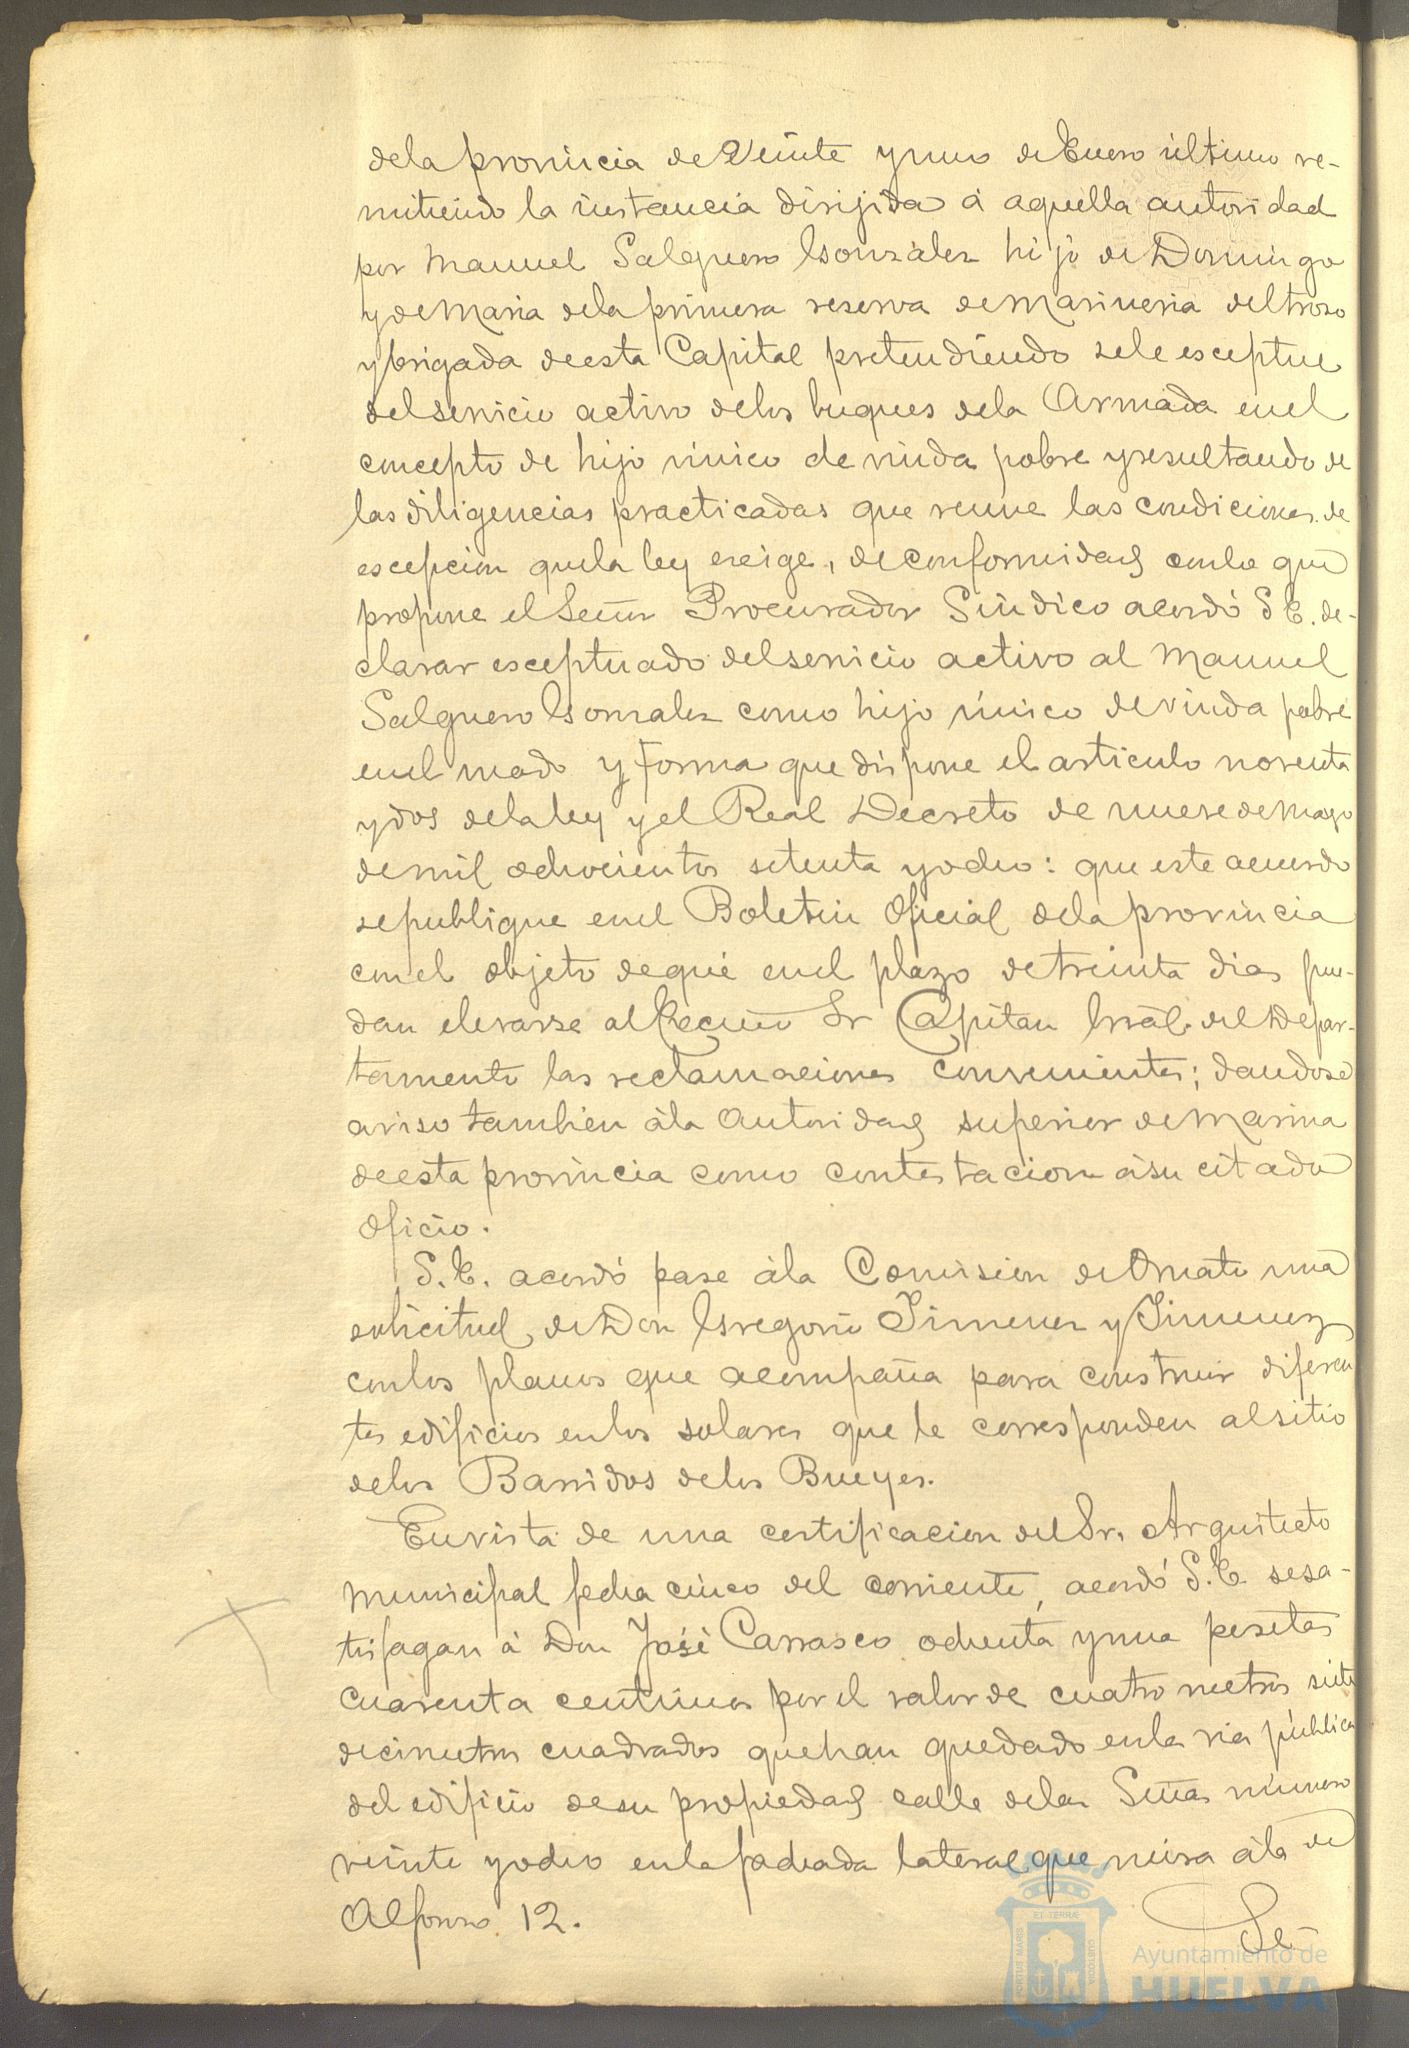 dela provincia de Veinte y uno de Enero último re-
mitiendo la instancia dirijida á aquella autoridad
por Manuel Salguero Gonzalez hijo de Domingo
y de Maria dela primera reserva de marineria del trozo
y brigada de esta Capital pretendiendo se le esceptue
del servicio activo delos buques dela Armada enel
concepto de hijo único de viuda pobre y resultando de
las diligencias practicadas que reune las condiciones de
escepcion quela ley exige, de conformidad conlo que
propone el Señor Procurador Síndico acordó S.E. de-
clarar esceptuado del servicio activo al Manuel
Salguero Gonzalez como hijo único de viuda pobre
enel modo y forma que dispone el articulo noventa
y dos dela ley y el Real Decreto de nueve de Mayo
de mil ochocientos setenta y ocho: que este acuerdo
se publique enel Boletin Oficial dela provincia
conel objeto de que enel plazo de treinta dias pue-
dan elevarse al Excmo Sr Capitan Gral. del Depar-
tamento las reclamaciones convenientes; dandose
aviso tambien ála autoridad superior de Marina
de esta provincia como contestacion ásu citado
oficio.
S.E. acordó pase ála Comision de Ornato una
solicitud de Don Gregorio Jimenez y Jimenez
conlos planos que acompaña para construir diferen
tes edificios enlos solares que le corresponden al sitio
delos Barridos delos Bueyes.
En vista de una certificacion del Sr. Arquitecto
Municipal fecha cinco del corriente, acordó S.E. se sa-
tisfagan á Don José Carrasco ochenta y una pesetas
cuarenta centimos por el valor de cuatro metros siete
decimetros cuadrados que han quedado enla via pública
del edificio de su propiedad calle dela Señas número
veinte y ocho enla fachada lateral que mira ála de
Alfonso 12.
Se-
Ayuntamiento de
HUELVA